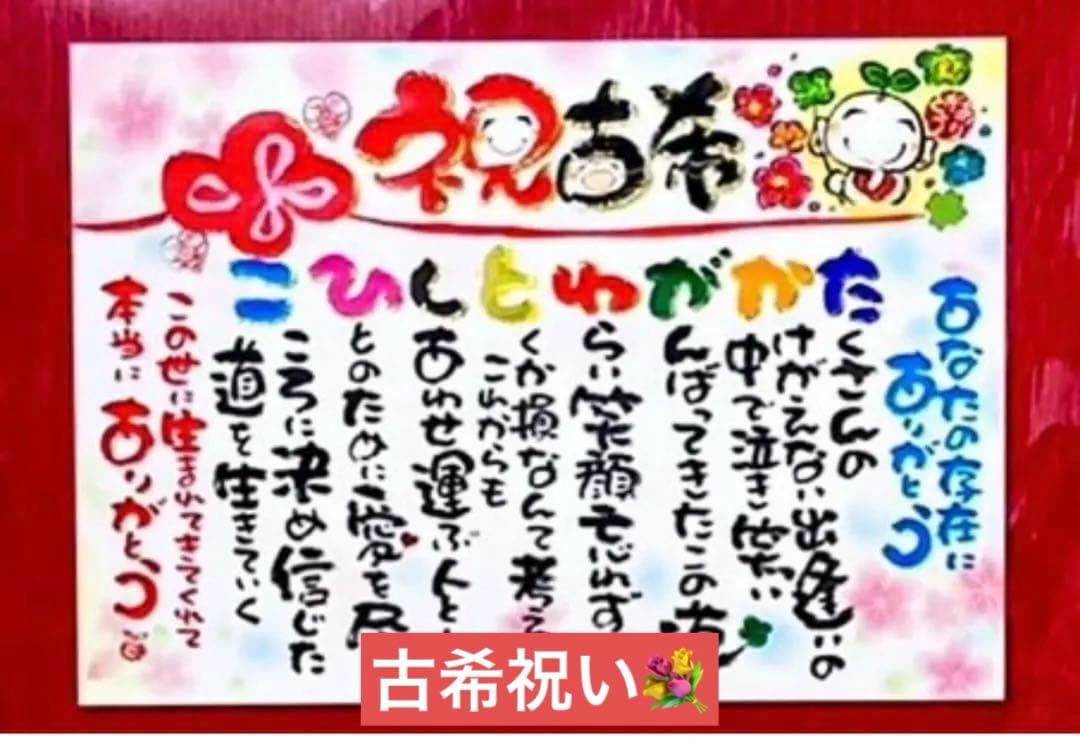 祝古希
あなたの存在に
ありがとう
たかがわとんひこ
たくさんの
かけがえない出逢いの
中で泣き笑い
がんばってきたこの道
わらい笑顔忘れず
とくか損なんて考え
これからも
んあわせ運ぶ人と
ひとのために愛を
こころに決め信じた
道を生きていく
この世に生まれてきてくれて
本当にありがとう
古希祝い💐